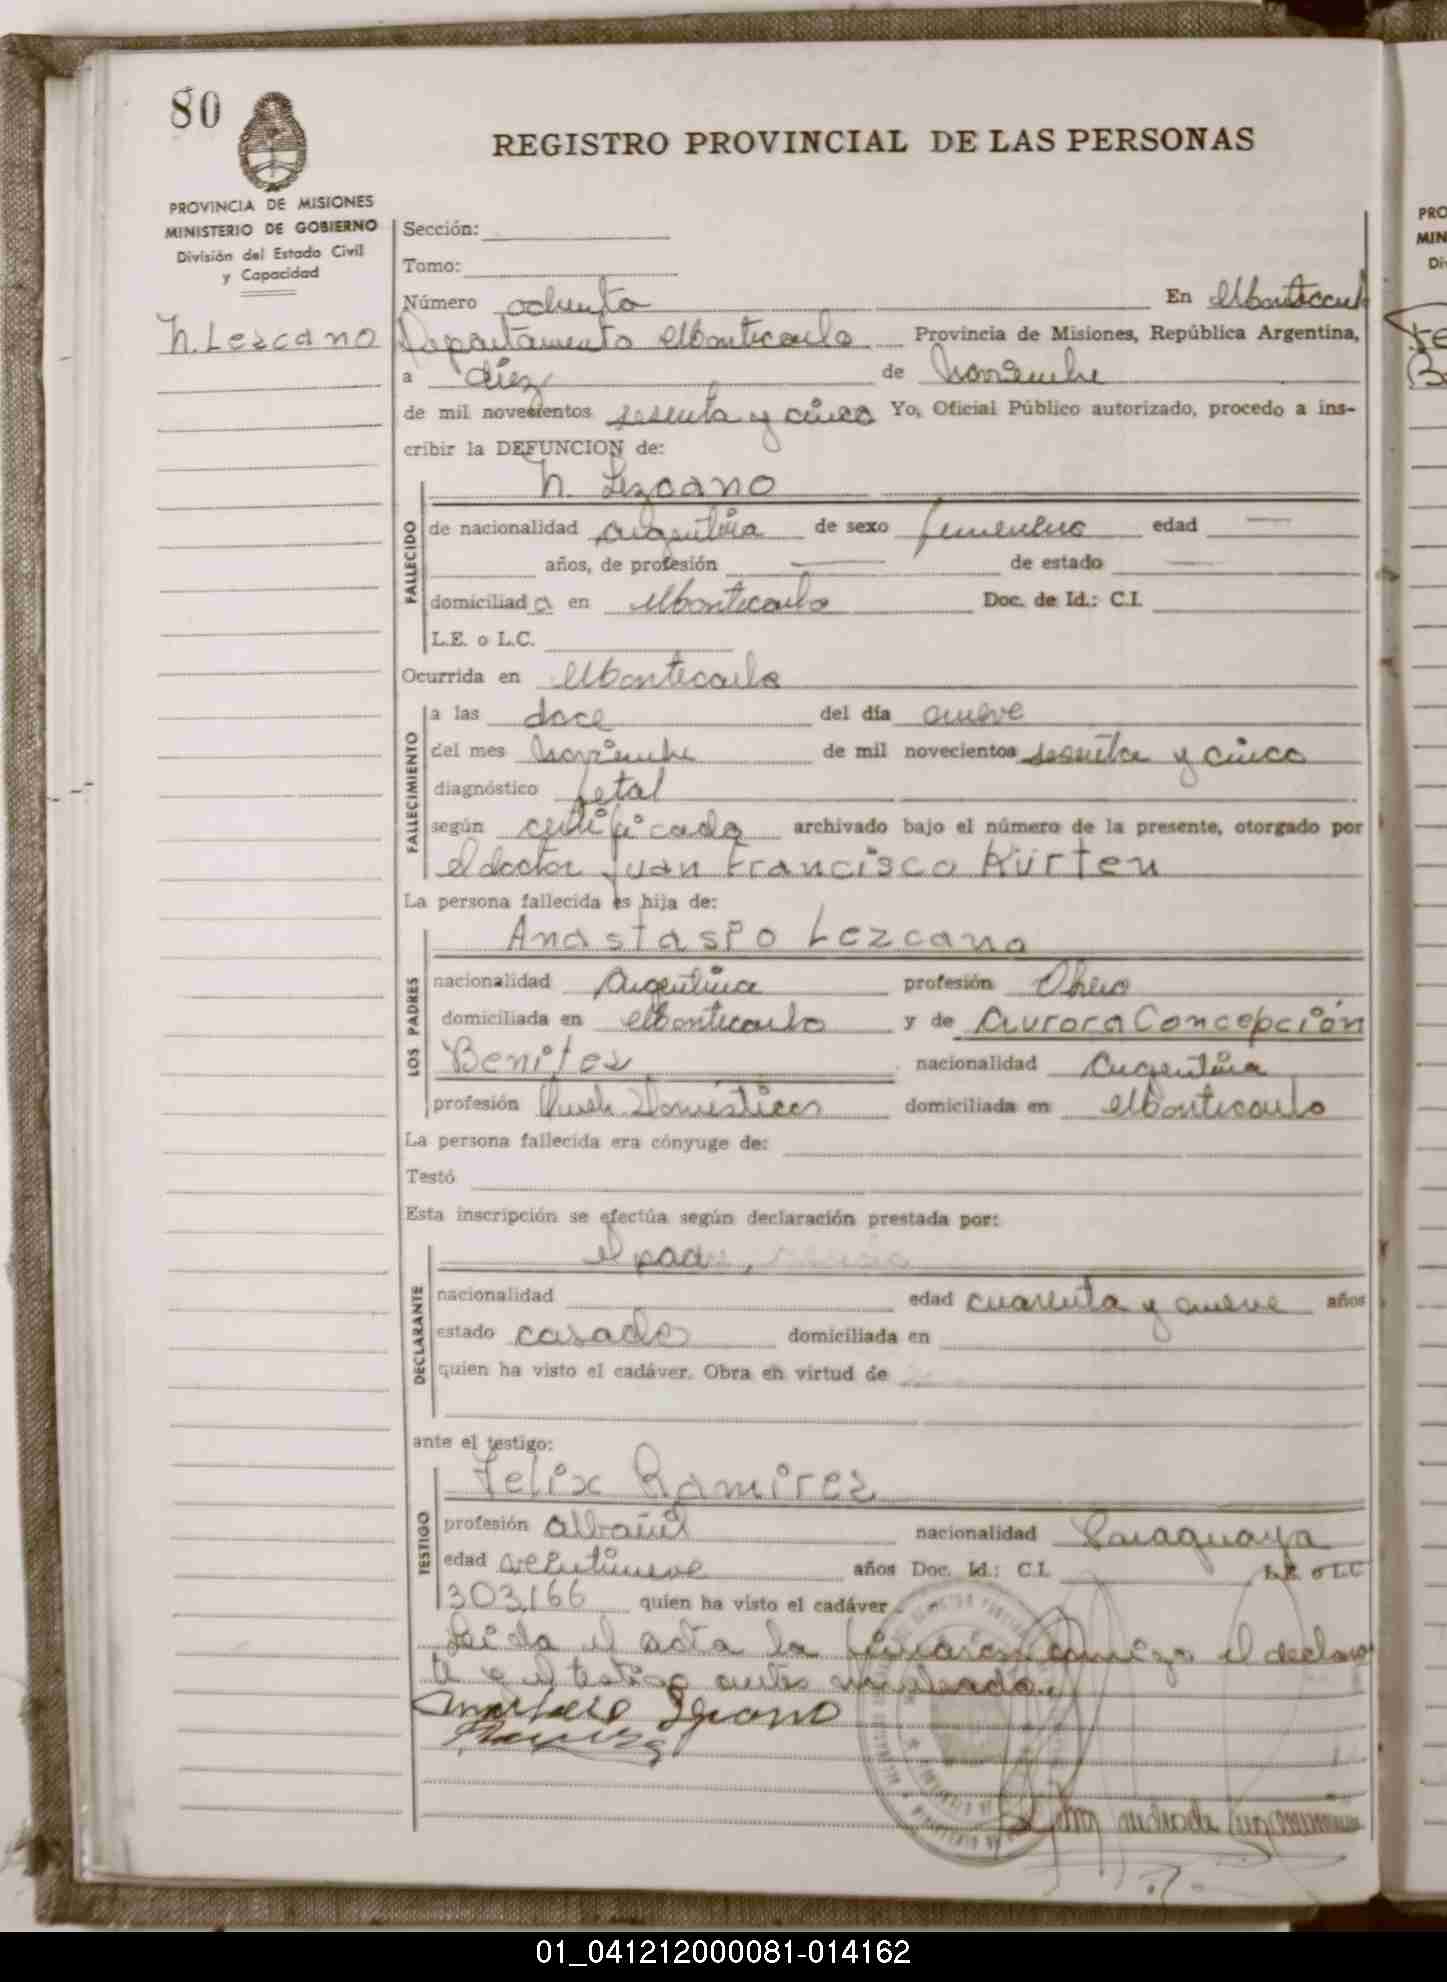 80
REGISTRO PROVINCIAL DE LAS PERSONAS
PROVINCIA DE MISIONES
MINISTERIO DE GOBIERNO
División del Estado Civil
y Capacidad
N. Lezcano
Sección:
Tomo:
Número ochenta En Montecarlo
Departamento Montecarlo Provincia de Misiones, República Argentina,
a diez de Noviembre
de mil novecientos sesenta y cinco Yo, Oficial Público autorizado, procedo a ins-
cribir la DEFUNCION de:
N. Lezcano
FALLECIDO
de nacionalidad Argentina de sexo femenino edad —
años, de profesión — de estado —
domiciliada en Montecarlo Doc. de Id.: C.I.
L.E. o L.C.
Ocurrida en Montecarlo
FALLECIMIENTO
a las doce del día nueve
del mes Noviembre de mil novecientos sesenta y cinco
diagnóstico fetal
según certificado archivado bajo el número de la presente, otorgado por
el doctor Juan Francisco Kürten
La persona fallecida es hija de:
LOS PADRES
Anastasio Lezcano
nacionalidad Argentina profesión Obrero
domiciliada en Montecarlo y de Aurora Concepción
Benitez nacionalidad Argentina
profesión Queh. Domésticos domiciliada en Montecarlo
La persona fallecida era cónyuge de:
Testó
Esta inscripción se efectúa según declaración prestada por:
DECLARANTE
el padre,
nacionalidad edad cuarenta y nueve años
estado casado domiciliada en
quien ha visto el cadáver. Obra en virtud de
ante el testigo:
TESTIGO
Felix Ramirez
profesión albañil nacionalidad Paraguaya
edad veintinueve años Doc. Id.: C.I. L.E. o L.C
303.166 quien ha visto el cadáver
Leida el acta la firmaron conmigo el declaran
te y el testigo antes nombrado.
PRO
MIN
Di
01_041212000081-014162